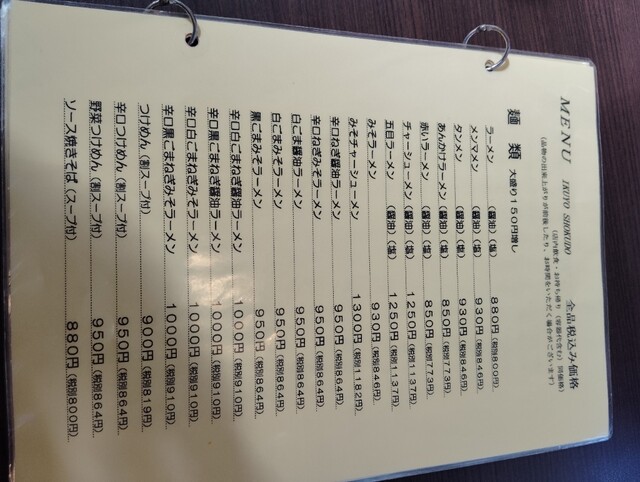 MENU IKUYO SHOKUDO 全品税込み価格
(店内飲食・お持ち帰り(容器代含む)同価格)
(品物の出来上がりが前後したり、お時間をいただく場合がございます)
麺 類 大盛り150円増し
ラーメン (醤油)(塩) 880円(税別800円)
メンマメン (醤油)(塩) 930円(税別846円)
タンメン (醤油)(塩) 930円(税別846円)
あんかけラーメン (醤油)(塩) 850円(税別773円)
赤いラーメン (醤油)(塩) 850円(税別773円)
チャーシューメン (醤油)(塩) 1250円(税別1137円)
五目ラーメン (醤油)(塩) 1250円(税別1137円)
みそラーメン 930円(税別846円)
みそチャーシューメン 1300円(税別1182円)
辛口ねぎ醤油ラーメン 950円(税別864円)
辛口ねぎみそラーメン 950円(税別864円)
白ごま醤油ラーメン 950円(税別864円)
白ごまみそラーメン 950円(税別864円)
黒ごまみそラーメン 950円(税別864円)
辛口白ごまねぎ醤油ラーメン 1000円(税別910円)
辛口黒ごまねぎ醤油ラーメン 1000円(税別910円)
辛口白ごまねぎみそラーメン 1000円(税別910円)
辛口黒ごまねぎみそラーメン 1000円(税別910円)
つけめん(割スープ付) 900円(税別819円)
辛口つけめん(割スープ付) 950円(税別864円)
野菜つけめん(割スープ付) 950円(税別864円)
ソース焼きそば(スープ付) 880円(税別800円)